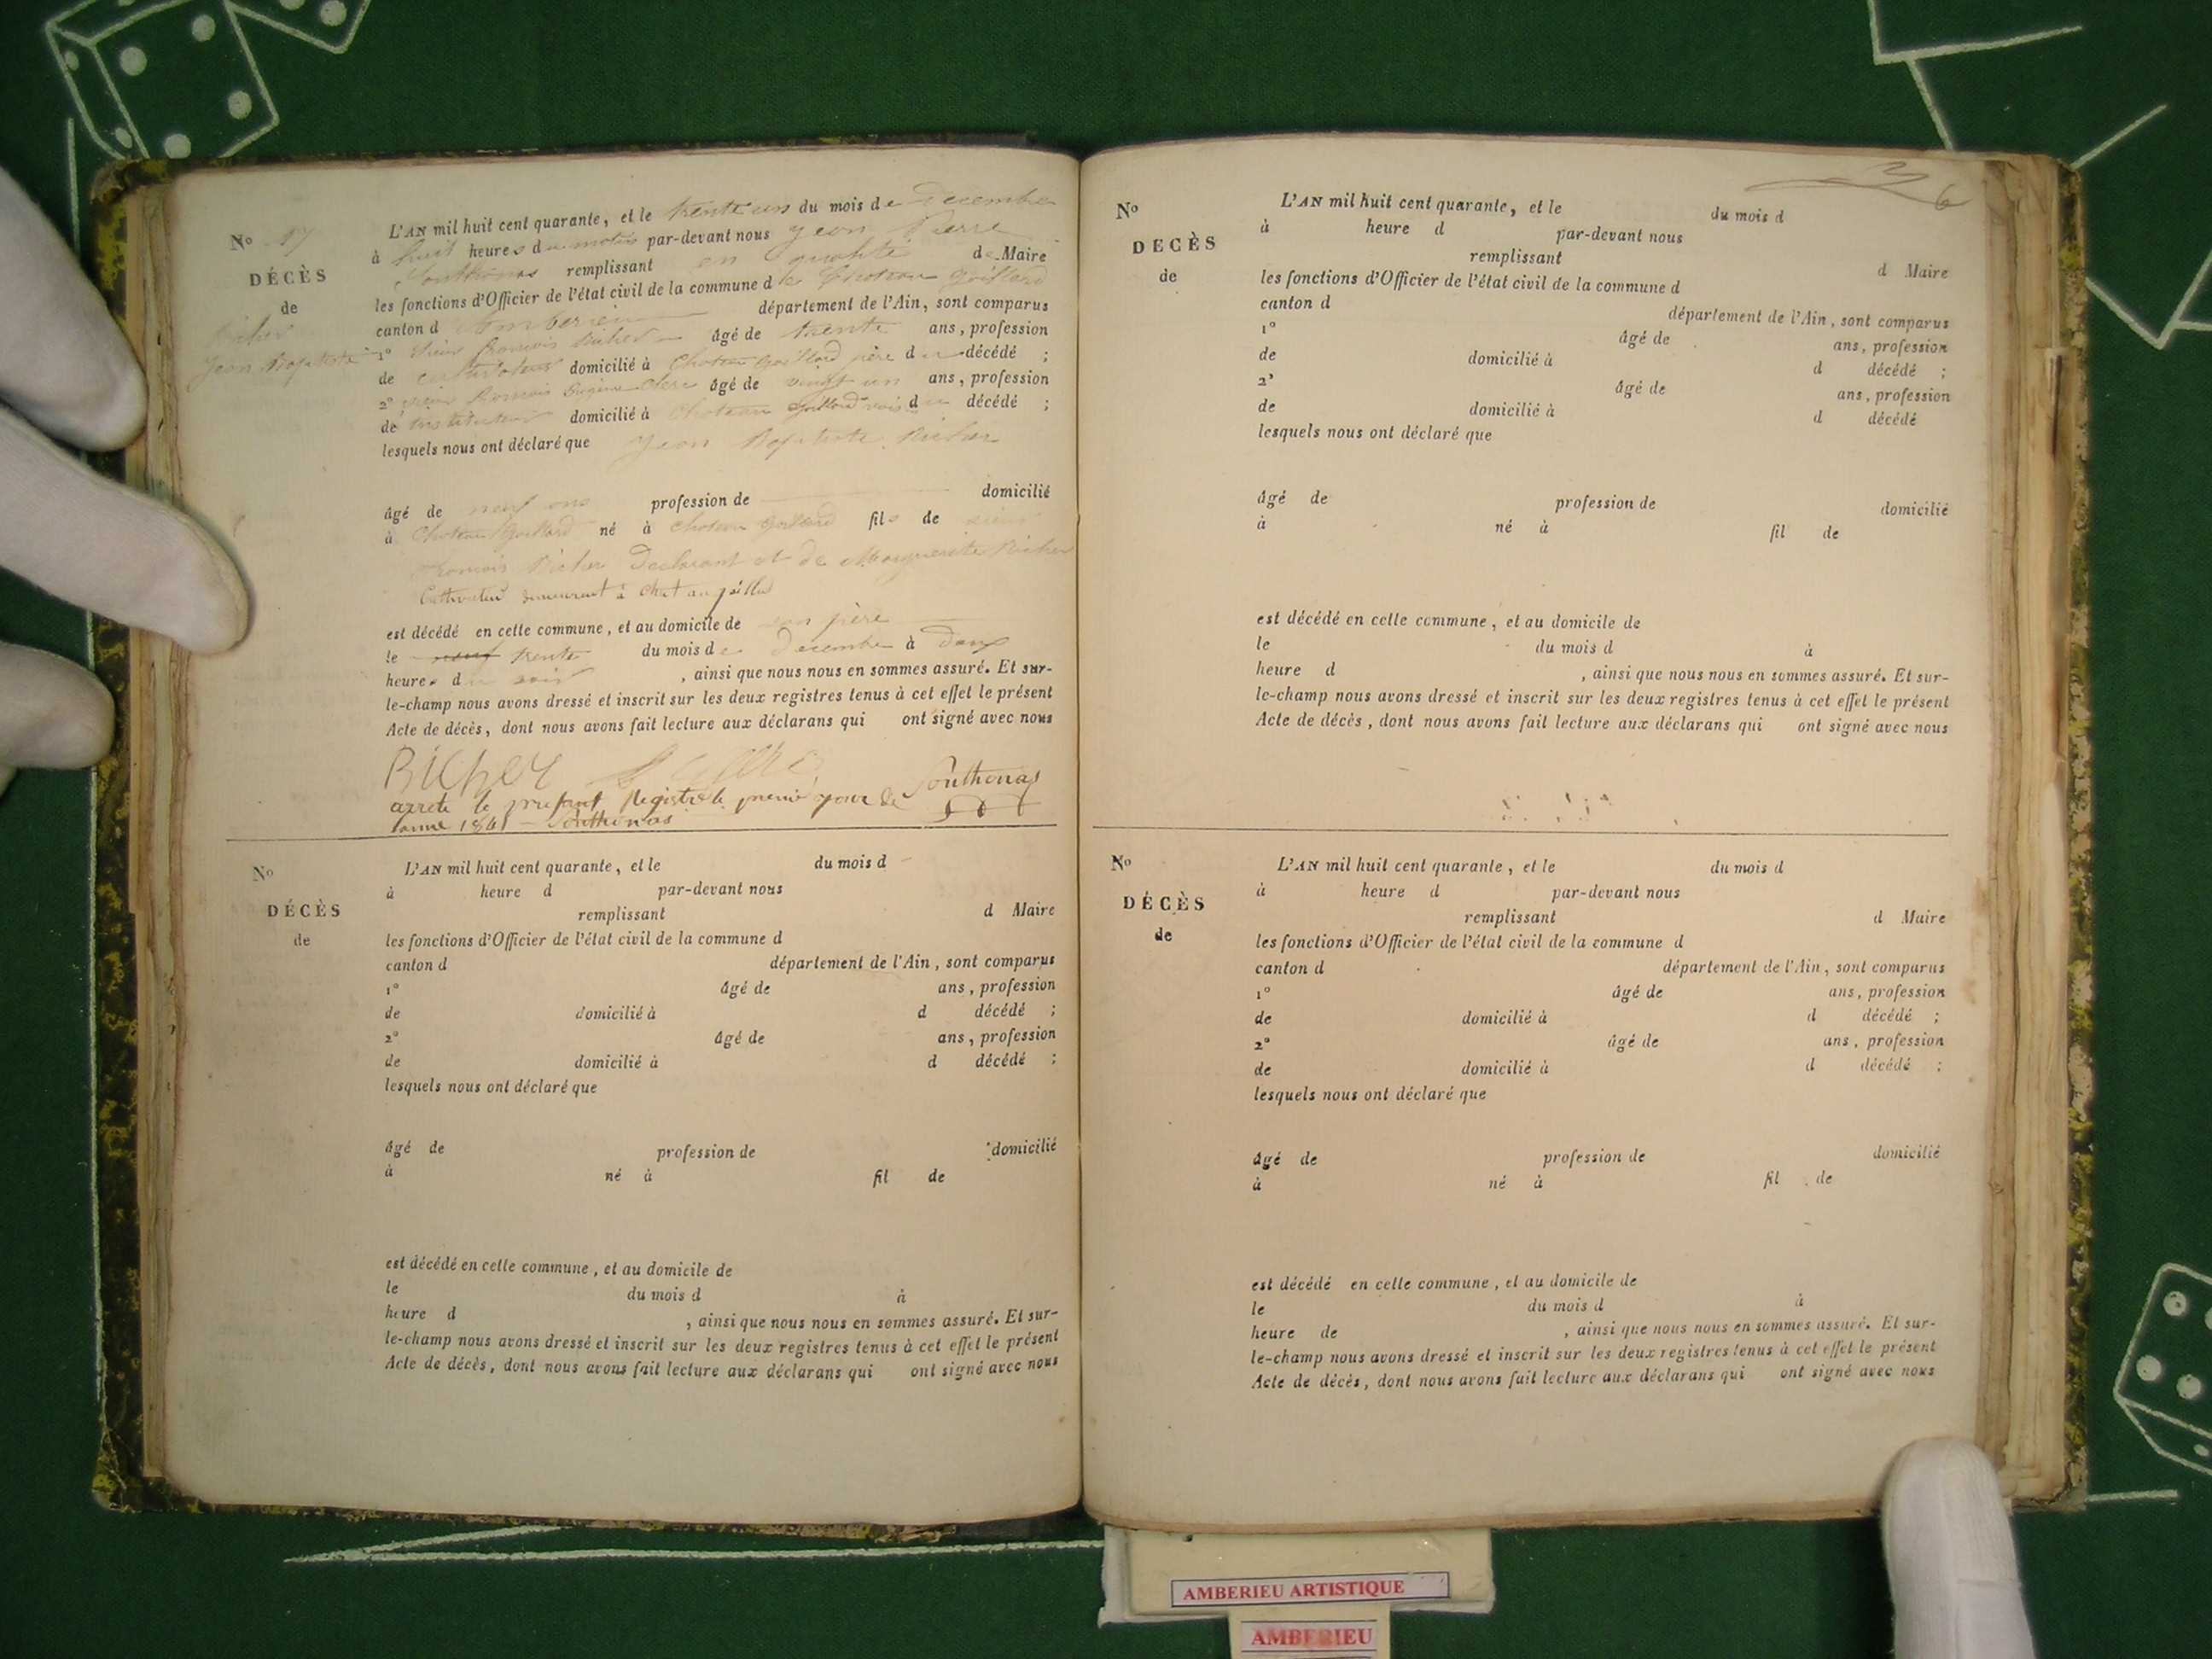 No 17
DÉCÈS
de
Richer
Jean Baptiste
L'AN mil huit cent quarante, et le trente un du mois de Decembre
à huit heures du matin par-devant nous Jean Pierre
Southonas remplissant en qualité de Maire
les fonctions d'Officier de l'état civil de la commune de Chateau Gaillard
canton d'Amberieu département de l'Ain, sont comparus
1° Sieur francois Richer âgé de trente ans, profession
de cultivateur domicilié à Chateau Gaillard père du décédé ;
2° Sieur Eugène Clerc âgé de vingt un ans, profession
de instituteur domicilié à Chateau Gaillard voisin du décédé ;
lesquels nous ont déclaré que Jean Baptiste Richer
âgé de neuf ans profession de domicilié
à Chateau Gaillard né à Chateau Gaillard fils de sieur
francois Richer Declarant et de Marguerite Richer
Cultivateur demeurant à
est décédé en cette commune, et au domicile de son père
le neuf trente du mois de Decembre à deux
heures du soir , ainsi que nous nous en sommes assuré. Et sur-
le-champ nous avons dressé et inscrit sur les deux registres tenus à cet effet le présent
Acte de décès, dont nous avons fait lecture aux déclarans qui ont signé avec nous
Richer Southonas
arrete le present Registre le premier jour de
l'anné 1841 Southonas
No
DÉCÈS
de
L'AN mil huit cent quarante, et le du mois d
à heure d par-devant nous
remplissant d Maire
les fonctions d'Officier de l'état civil de la commune d
canton d département de l'Ain, sont comparus
1° âgé de ans, profession
de domicilié à d décédé ;
2° âgé de ans, profession
de domicilié à d décédé ;
lesquels nous ont déclaré que
âgé de profession de domicilié
à né à fil de
est décédé en cette commune, et au domicile de
le du mois d à
heure d , ainsi que nous nous en sommes assuré. Et sur-
le-champ nous avons dressé et inscrit sur les deux registres tenus à cet effet le présent
Acte de décès, dont nous avons fait lecture aux déclarans qui ont signé avec nous
6
No
DECÈS
de
L'AN mil huit cent quarante, et le du mois d
à heure d par-devant nous
remplissant d Maire
les fonctions d'Officier de l'état civil de la commune d
canton d département de l'Ain, sont comparus
1° âgé de ans, profession
de domicilié à d décédé ;
2° âgé de ans, profession
de domicilié à d décédé
lesquels nous ont déclaré que
âgé de profession de domicilié
à né à fil de
est décédé en cette commune, et au domicile de
le du mois d à
heure d , ainsi que nous nous en sommes assuré. Et sur-
le-champ nous avons dressé et inscrit sur les deux registres tenus à cet effet le présent
Acte de décès, dont nous avons fait lecture aux déclarans qui ont signé avec nous
No
DÉCÈS
de
L'AN mil huit cent quarante, et le du mois d
à heure d par-devant nous
remplissant d Maire
les fonctions d'Officier de l'état civil de la commune d
canton d département de l'Ain, sont comparus
1° âgé de ans, profession
de domicilié à d décédé ;
2° âgé de ans, profession
de domicilié à d décédé ;
lesquels nous ont déclaré que
âgé de profession de domicilié
à né à fil de
est décédé en cette commune, et au domicile de
le du mois d à
heure de , ainsi que nous nous en sommes assuré. Et sur-
le-champ nous avons dressé et inscrit sur les deux registres tenus à cet effet le présent
Acte de décès, dont nous avons fait lecture aux déclarans qui ont signé avec nous
AMBERIEU ARTISTIQUE
AMBERIEU